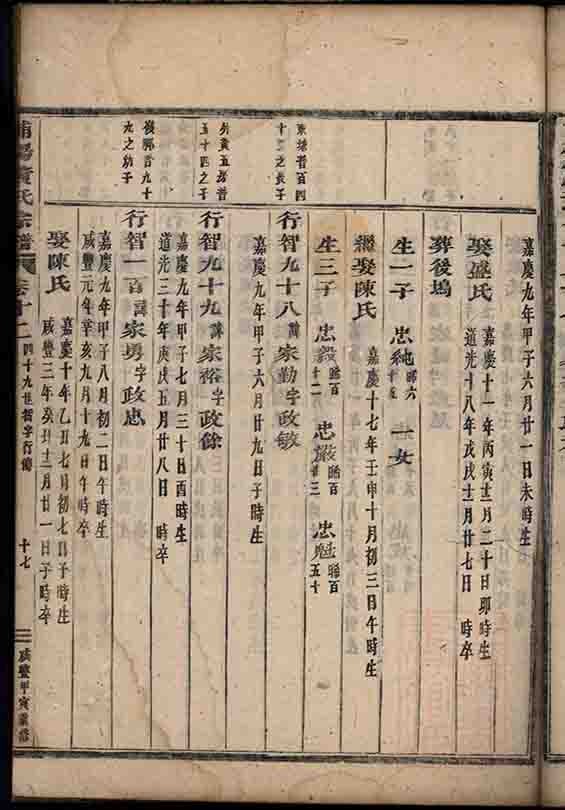 嘉慶九年甲子六月廿一日未時生
娶盛氏
嘉慶十一年丙寅十二月二十日卯時生
道光十八年戊戌十二月廿七日　時卒
葬後塢
生一子　忠純　一女
繼娶陳氏
嘉慶十七年壬申十月初三日午時生
生三子　忠毅　忠嚴　忠魁
行智九十八諱家勤字政敏
嘉慶九年甲子六月廿九日子時生
行智九十九諱家裕字政餘
嘉慶九年甲子七月三十日酉時生
道光三十年庚戌五月廿八日　時卒
行智一百諱家勇字政忠
嘉慶九年甲子八月初二日午時生
咸豐元年辛亥九月十九日午時卒
娶陳氏
嘉慶十年乙丑七月初七日子時生
咸豐三年癸丑十二月廿一日子時卒
黃氏宗譜
卷十二
四十九世智字行傳
十七
咸豐甲寅重修